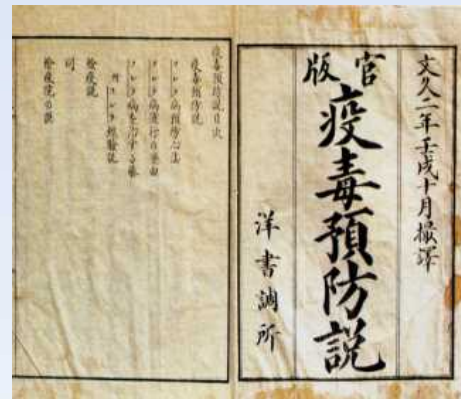 文久二年壬戌十月撮譯
官版
疫毒預防説
洋書調所
疫毒預防説目次
疫毒預防説
コレラ病預防心法
コレラ病流行の
コレラ病を治する
コレラ経験説
檢疫説
同
檢疫院の説